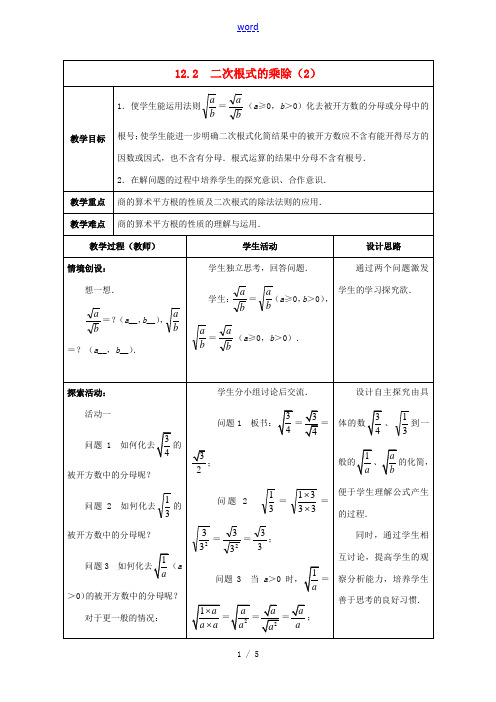 word
12.2 二次根式的乘除(2)
教学目标
1.使学生能运用法则√(a/b)=√a/√b(a≥0,b>0)化去被开方数的分母或分母中的
根号;使学生能进一步明确二次根式化简结果中的被开方数应不含有能开得尽方的
因数或因式,也不含有分母.根式运算的结果中分母不含有根号.
2.在解问题的过程中培养学生的探究意识、合作意识.
教学重点 商的算术平方根的性质及二次根式的除法法则的应用.
教学难点 商的算术平方根的性质的理解与运用.
教学过程(教师) 学生活动 设计思路
情境创设:
想一想.
√a/√b=?(a__,b__),√(a/b)
=?(a__,b__).
学生独立思考,回答问题.
学生:√a/√b=√(a/b)(a≥0,b>0),
√(a/b)=√a/√b(a≥0,b>0).
通过两个问题激发
学生的学习探究欲.
探索活动:
活动一
问题1 如何化去√(3/4)的
被开方数中的分母呢?
问题2 如何化去√(1/3)的
被开方数中的分母呢?
问题3 如何化去√(1/a)(a
>0)的被开方数中的分母呢?
对于更一般的情况:
学生分小组讨论后交流.
问题1 板书:√(3/4)=√3/√4=
√3/2;
问题2 √(1/3)=√((1×3)/(3×3))=
√(3/3²)=√3/√3²=√3/3;
问题3 当a>0时,√(1/a)=
√((1×a)/(a×a))=√(a/a²)=√a/√a²=√a/a;
设计自主探究由具
体的数√(3/4)、√(1/3)到一
般的√(1/a)、√(a/b)的化简,
便于学生理解公式产生
的过程.
同时,通过学生相
互讨论,提高学生的观
察分析能力,培养学生
善于思考的良好习惯.
1 / 5